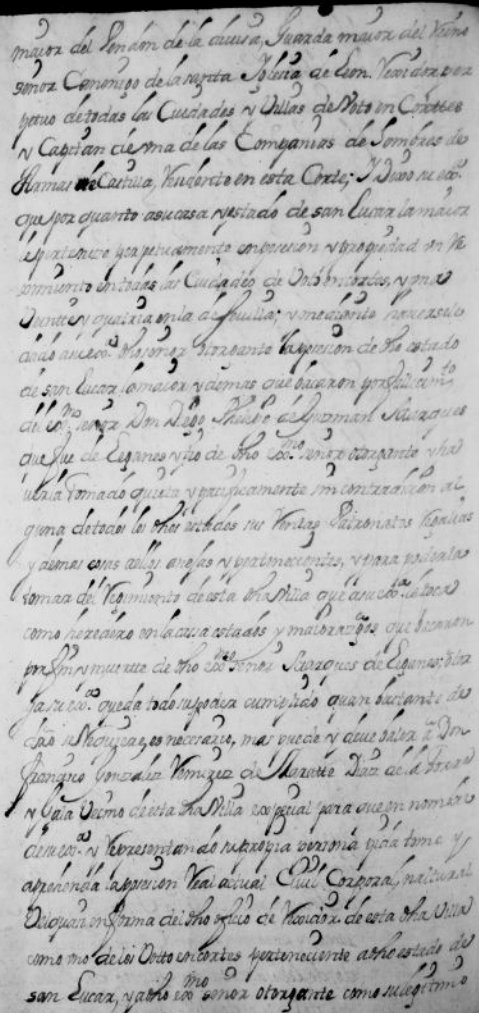 maior del Pendon de la divisa, Guarda maior del Reino
señor Canonigo de la santa Iglesia de Leon. Rexidor per
petuo de todas las Ciudades y Villas de Voto en Corttes
y Capitan de una de las Compañias de hombres de
Armas de Castilla, Residente en esta Corte; Y Dixo su exª.
que por quanto a su casa y estado de san Lucar la maior
le perteneze perpetuamente en posesion y propiedad un Re
ximiento en todas las Ciudades de Voto en cortes, y una
Veintte y quatria en la de sevilla; y mediante haversele
dado a su exª. dho señor otorgante la posesion de dho estado
de san Lucar la maior y demas que bacaron por fallecimto
del exmo. señor Don Diego Phelipe de Guzman Marques
que fue de Leganes y tio de dho exmo señor otorgante y ha
verla tomado quieta y pacificamente sin contradicion al
guna de todos los dhos estados sus Rentas Patronatos Regalias
y demas cosas a ellos anejas y pertenecientes, y para poderla
tomar del Reximiento de esta dha Villa que a su exª. le toca
como heredero en la casa estados y maiorazgos que bacaron
por fin y muerte de dho exmo señor Marques de Leganes; otor
ga su exª. que da todo su poder cumplido quan bastante de
dro se Requiere, es necesario, mas puede y deve baler a Don
Francisco Gonzalez Ramirez de Zarate Diaz de la
y Vecino de esta dha Villa especial para que en nombre
de su exª. y Representando su propia persona pida tome y
aprehenda la posesion Real actual Civil Corporal, natural
Vel quasi en forma del dho oficio de Rexidor de esta dha Villa
como uno de los Votto en cortes perteneciente a dho estado de
san Lucar, y a dho exmo señor otorgante como su legitimo